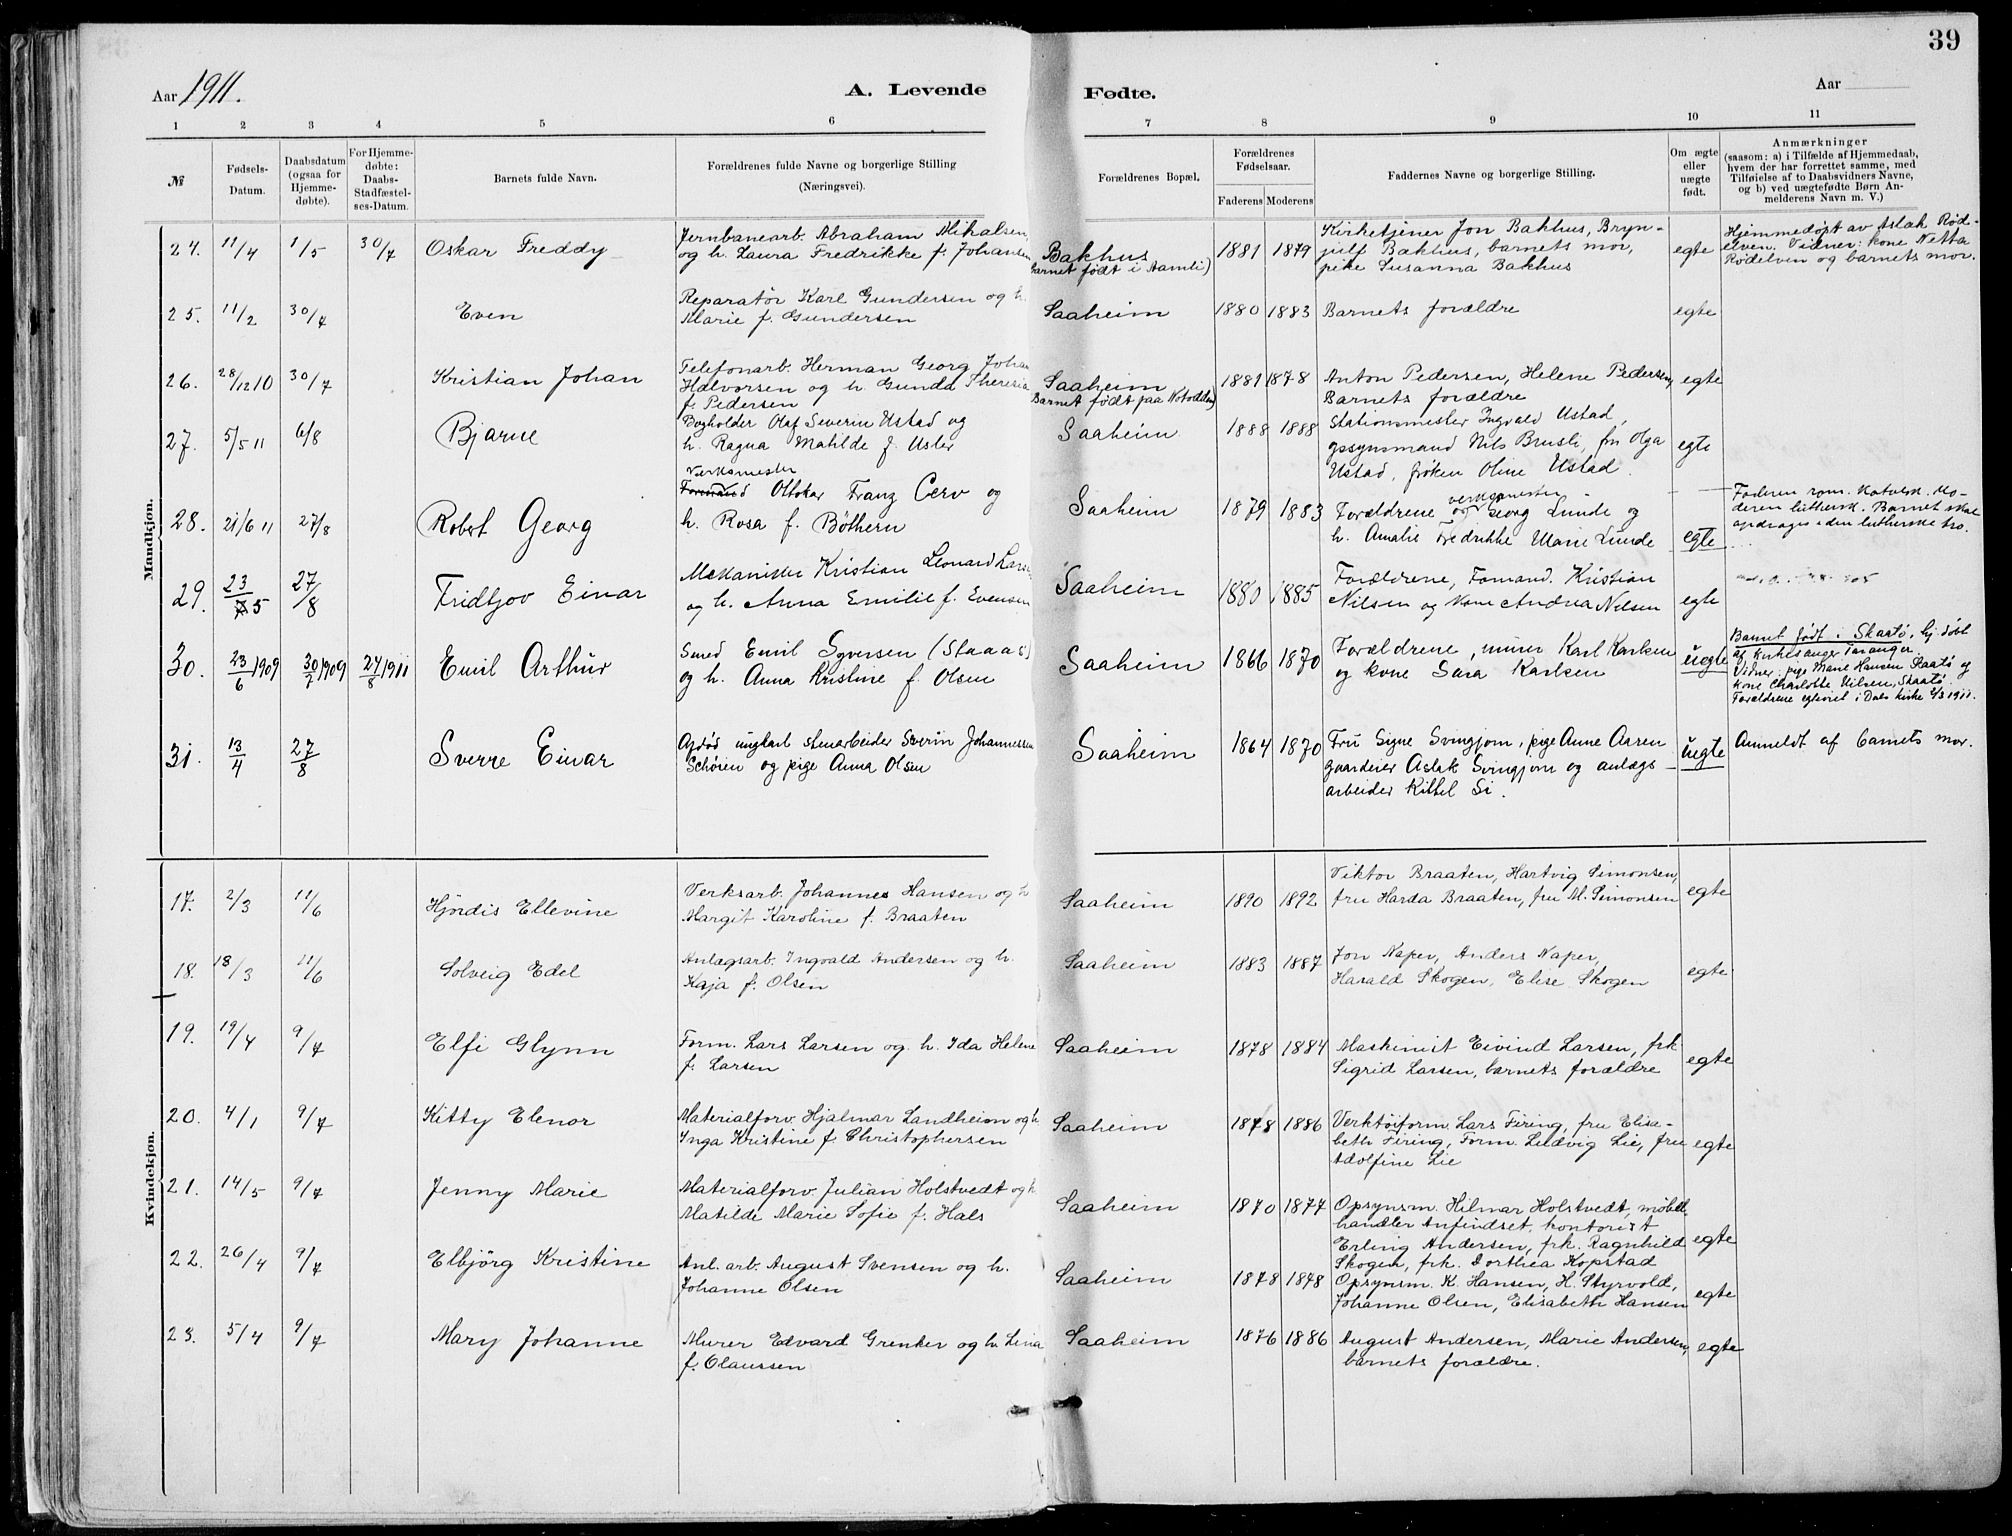 39
Aar 1911.
A. Levende Fødte.
Aar
1 2 3 4 5 6 7 8 9 10 11
№
Fødsels-Datum.
Daabsdatum (ogsaa for Hjemme-døbte).
For Hjemme-døbte: Daabs-Stadfæstel-ses-Datum.
Barnets fulde Navn.
Forældrenes fulde Navne og borgerlige Stilling (Næringsvei).
Forældrenes Bopæl.
Forældrenes Fødselsaar.
Faderens Moderens
Faddernes Navne og borgerlige Stilling.
Om ægte eller uægte født.
Anmærkninger
(saasom: a) i Tilfælde af Hjemmedaab,
hvem der har forrettet samme, med
Tilføielse af to Daabsvidners Navne,
og b) ved uægtefødte Børn An-
melderens Navn m. V.)
Mandkjøn.
24. 11/4 1/5 30/7 Oskar Freddy
Jernbanearb. Abraham Mikalsen
og h. Laura Fredrikke f. Johansen
Bakhus
(barnet født i Aamli)
1881 1879
Kirketjener Jon Bakhus, Bryn-
julf Bakhus, barnets mor,
pike Susanna Bakhus
egte
Hjemmedøpt av Aslak Rød-
elven. Vidner: kone Netta
Rødelven og barnets mor.
25. 11/2 30/7 Even
Reparatør Karl Gundersen og h.
Marie f. Gundersen
Saaheim 1880 1883 Barnets forældre egte
26. 28/12 10 30/7 Kristian Johan
Telefonarb. Herman Georg Johan
Halvorsen og h. Gunda Theresia
f. Pedersen
Saaheim
Barnet født paa Notodden)
1881 1878
Anton Pedersen, Helene Pedersen,
Barnets forældre
egte
27. 5/5 11 6/8 Bjarne
Bogholder Olaf Severin Ustad og
h. Ragna Mathilde f. Usler
Saaheim 1888 1888
Stationsmester Ingvald Ustad,
opsynsmand Nils Brusli, fru Olga
Ustad, frøken Oline Ustad.
egte
28. 21/6 11 27/8 Robert Georg
Verksmester
Formand Ottokar Franz Cerv og
h. Rosa f. Böthern
Saaheim 1879 1883
verksmester
Forældrene og Georg Lunde og
h. Amalie Fredrikke Marie Lunde
egte
Faderen rom. katolsk. Mo-
deren luthersk. Barnet skal
opdrages i den lutherske tro.
29. 23/5 27/8 Fridtjov Einar
Mekaniker Kristian Leonard Larsen
og h. Anna Emilie f. Evensen
Saaheim 1880 1885
Forældrene, Formand. Kristian
Nilsen og kone Andrea Nilsen
egte
30. 23/6 1909 30/7 1909 27/8 1911 Emil Arthur
Smed Emil Syversen (Staaas)
og h. Anna Kristine f. Olsen
Saaheim 1866 1870
Forældrene, murer Karl Karlsen
og kone Sara Karlsen
uegte
Barnet født i Skaatø, hj. døbt
af kirkesanger Taranger.
Vidner: pige Marie Hansen Skaatø og
kone Charlotte Nilsen, Skaatø.
Forældrene egteviet i Dals kirke 2/3 1911.
31. 13/4 27/8 Sverre Einar
Afdød ungkarl stenarbeider Severin Johannessen
Schören og pige Anna Olsen
Saaheim 1864 1870
Fru Signe Svingjom, pige Anne Aasen
gaardeier Aslak Svingjom og anlægs-
arbeider Kittel Si.
uegte Anmeldt af barnets mor.
Kvindekjøn.
17. 2/3 11/6 Hjördis Ellevine
Verksarb. Johannes Hansen og h
Margit Karoline f. Braaten
Saaheim 1890 1892
Viktor Braaten, Hartvig Simonsen,
fru Harda Braaten, fru M. Simonsen
egte
18. 18/3 11/6 Solveig Edel
Anlægsarb. Ingvald Andersen og h.
Kaja f. Olsen
Saaheim 1883 1887
Jon Naper, Anders Naper,
Harald Skogen, Elise Skogen
egte
19. 19/4 9/7 Elfi Glynn
Form. Lars Larsen og h. Ida Helene
f. Larsen
Saaheim 1878 1884
Maskinist Eivind Larsen, frk
Sigrid Larsen, barnets forældre
egte
20. 4/1 9/7 Kitty Elenor
Materialforv. Hjalmar Landheim og h
Inga Kristine f. Christophersen
Saaheim 1878 1886
Verktøiform. Lars Firing, fru Elisa-
beth Firing, Form. Ludvig Lie, fru
Adolfine Lie
egte
21. 14/5 9/7 Jenny Marie
Materialforv. Julian Holstvedt og h
Matilde Marie Sofie f. Hals
Saaheim 1870 1877
Opsynsm. Hilmar Holstvedt, møbel-
handler Anfindset, kontorist
Erling Andersen, frk. Ragnhild
Skogen, frk. Dorthea Kopstad
egte
22. 26/4 9/7 Elbjörg Kristine
Anl. arb. August Svensen og h.
Johanne Olsen
Saaheim 1878 1878
Opsynsm. K. Hansen, H. Styrvold,
Johanne Olsen, Elisabeth Hansen
egte
23. 5/4 9/7 Mary Johanne
Murer Edvard Grenker og h Lina
f. Olaussen
Saaheim 1876 1886
August Andersen, Marie Andersen,
barnets forældre.
egte